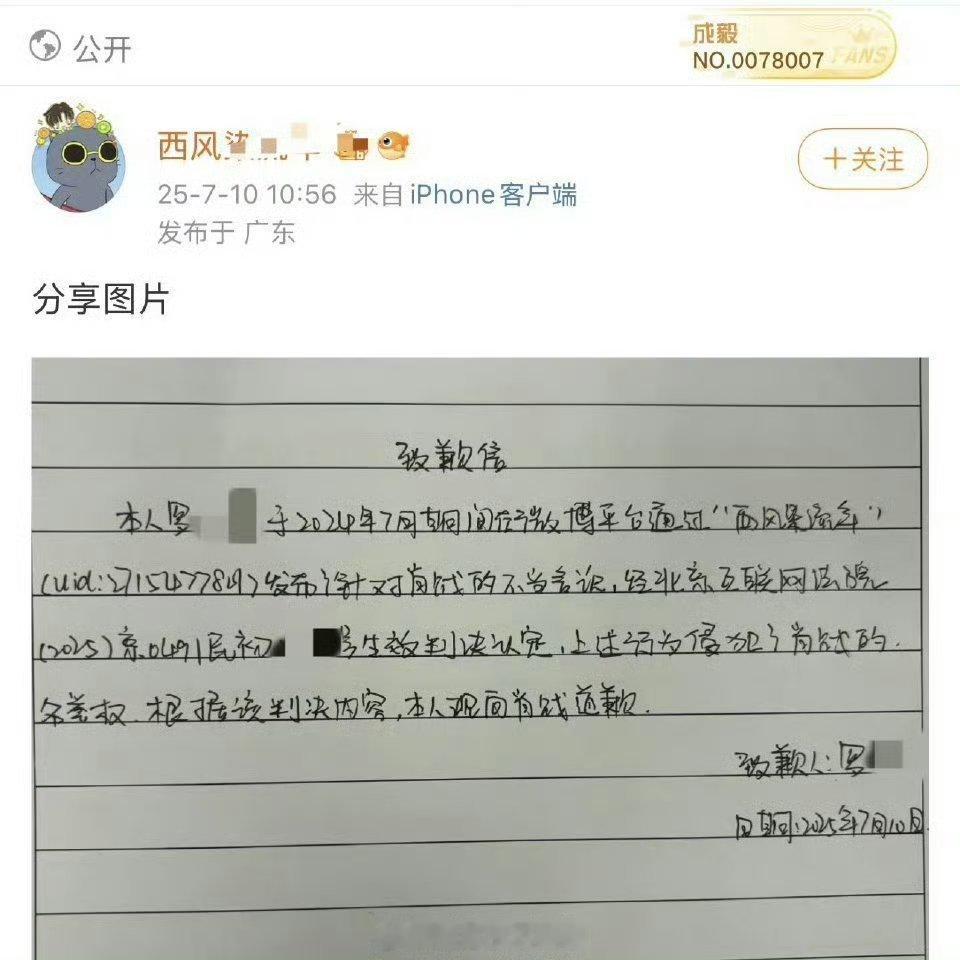 公开
成毅
NO.0078007
FANS
西风
+关注
25-7-10 10:56 来自 iPhone客户端
发布于 广东
分享图片
致歉信
本人罗 于2024年7月期间在微博平台通过“西风
(uid: 发布了针对肖战的不当言论,经北京互联网法院
(2025)京0491民初 号生效判决认定,上述行为侵犯了肖战的
名誉权.根据该判决内容,本人现向肖战道歉.
致歉人:罗
日期:2025年7月10日.